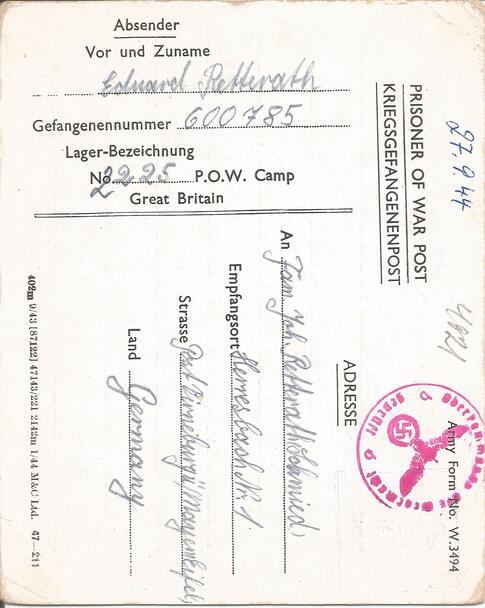 Absender
Vor und Zuname
Eduard Retterath
Gefangenennummer 600785
Lager-Bezeichnung
No. 2225 P.O.W. Camp
Great Britain
PRISONER OF WAR POST
KRIEGSGEFANGENENPOST
27.9.44
4821
ADRESSE
An Fam. Joh. Retterath (Schmied)
Empfangsort Herresbach Nr 1.
Strasse Post Virneburg ü/Mayen (Eifel)
Land Germany
Army Form No. W.3494
Oberkommando der Wehrmacht
402m 9/43 [87122] 47143/221 2142m 1/44 M&C Ltd. 47—211